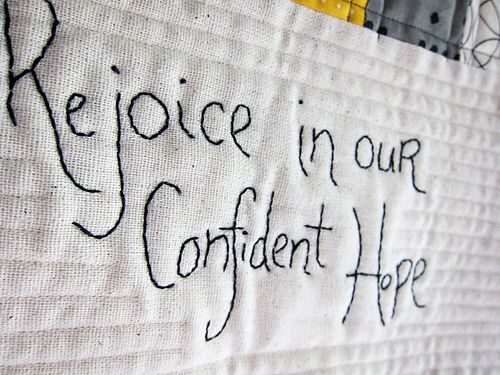 Rejoice in our
Confident Hope